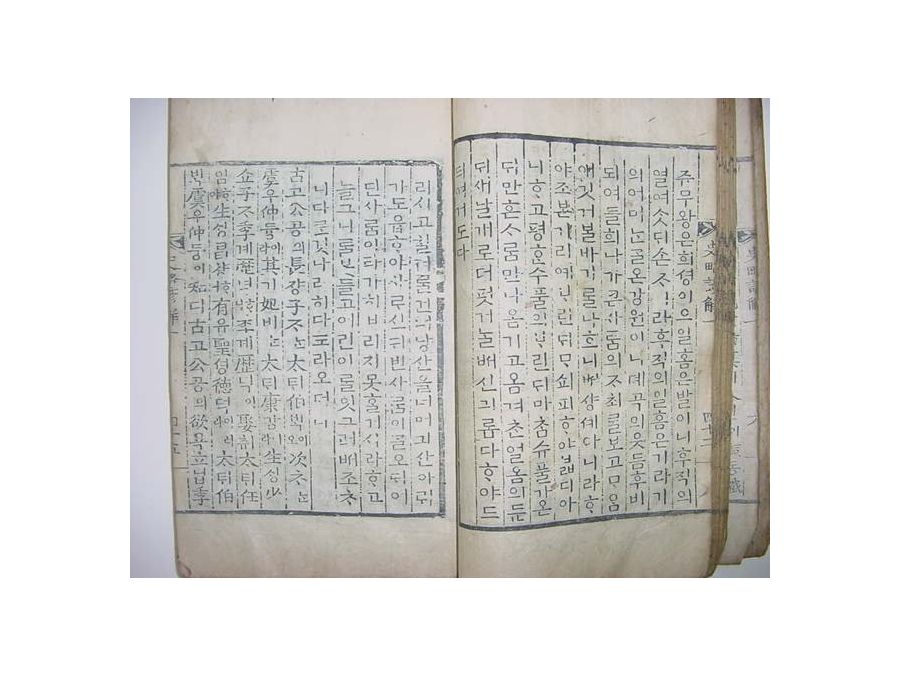 쥬무왕은희셩이오일홈은발이니후직의
열여ᄉᆞᆺᄃᆡ손ᄌᆡ라후직의일홈은기라기
의어미ᄂᆞᆫᄀᆞᆯ온강원이니뎨곡의읏듬후비
되여들희나가큰사ᄅᆞᆷ의자최ᄅᆞᆯ보고ᄆᆞ음
애깃거볼바기ᄅᆞᆯ나흐니ᄡᅥ샹셔아니라ᄒᆞ
야조븐기리예ᄇᆞ린ᄃᆡᄆᆞ쇼피ᄒᆞ야ᄇᆞᆲ디아
니ᄒᆞ고평ᄒᆞᆫ수풀의ᄇᆞ린ᄃᆡ마ᄎᆞᆷ슈풀가온
ᄃᆡ만흔사ᄅᆞᆷ만나옴기고옴겨ᄎᆞᆫ얼옴의둔
ᄃᆡ새ᄂᆞᆯ개로더펏거ᄂᆞᆯ배신긔롭다ᄒᆞ야드
ᄃᆡ여거도다
史略諺解 一
리시고칠져ᄅᆞᆯ건너냥산을너머기산아ᄅᆡ
가도읍ᄒᆞ야사ᄅᆞ신ᄃᆡ빈사ᄅᆞᆷ이ᄀᆞᆯ오ᄃᆡ어
딘사ᄅᆞᆷ이라가히ᄇᆞ리지못홀거시라ᄒᆞ고
늘그니ᄅᆞᆯ븟들고어린이ᄅᆞᆯ잇그러배조ᄎᆞ
니다ᄅᆞᆫ나라히다도라오더니
古고公공의長댱子ᄌᆞᄂᆞᆫ太ᄐᆡ伯ᄇᆡᆨ이오次ᄎᆞᄂᆞᆫ
虞우仲듕이라其기妃비ᄂᆞᆫ太ᄐᆡ康강이라生ᄉᆡᆼ少
쇼子ᄌᆞ季계歷녁ᄒᆞ다季계歷녁이娶ᄎᆔ太ᄐᆡ任
임ᄒᆞ야生ᄉᆡᆼ昌챵ᄒᆞ니有유聖셩德덕이러라太ᄐᆡ伯
ᄇᆡᆨ虞우仲듕이知디古고公공의欲욕立닙季